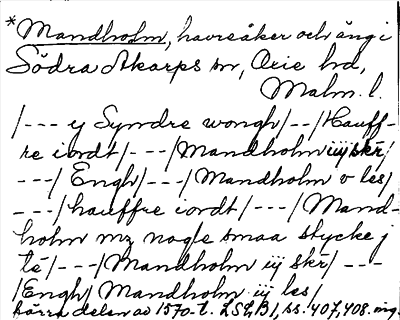 *Mandholm, havreåker och äng i
Södra Åkarps sn, Oxie hd,
Malm. l.
/--- y Syndre wongh/--/Hauff-
re iordt/---/Mandholm iij skr/
---/Engh/---/Mandholm v les/
---/hauffre iordt/---/Mand-
holm mz nogle smaa stycke j
te/---/Mandholm iij skr/---
/Engh/ Mandholm iij les/
förra delen av 1570-t. LSLB1, ss. 407, 408.